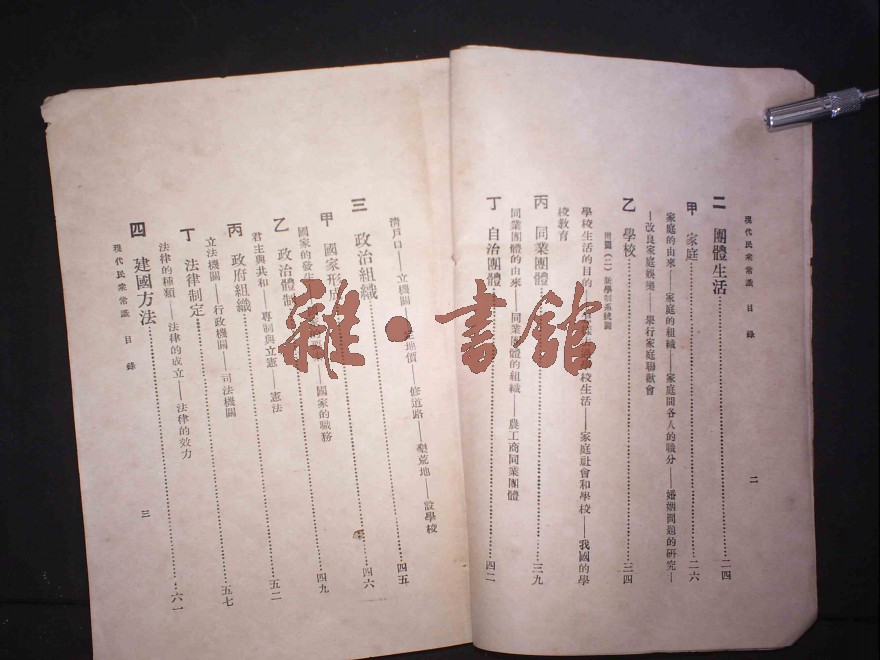 現代民衆常識 目錄 二
二 團體生活 二四
甲 家庭 二六
家庭的由來——家庭的組織——家庭間各人的職分——婚姻問題的研究—
—改良家庭娛樂——舉行家庭聯歡會
乙 學校 三四
附圖(二)新學制系統圖
學校生活的目的 校生活——家庭社會和學校——我國的學
校教育
丙 同業團體 三九
同業團體的由來——同業團體的組織——農工商同業團體
丁 自治團體 四二
清戶口——立機關—— 定地價 修道路——墾荒地——設學校 四五
三 政治組織 四六
甲 國家形成 四九
國家的發生 ——國家的職務
乙 政治體制 五二
君主與共和——專制與立憲——憲法
丙 政府組織 五七
立法機關——行政機關——司法機關
丁 法律制定 六一
法律的種類——法律的成立——法律的效力
四 建國方法
現代民衆常識 目錄 三
雜·書館